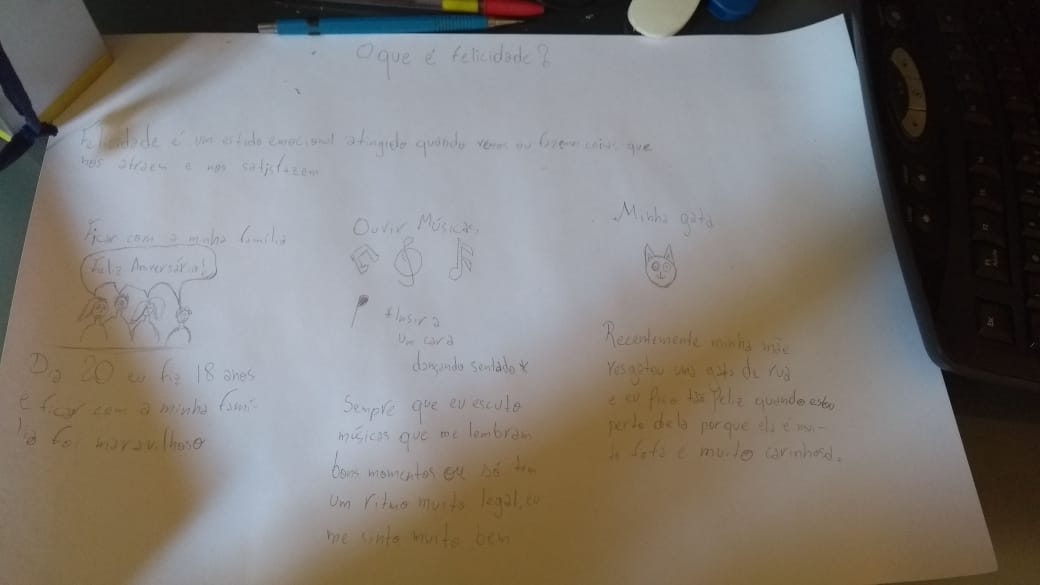 O que é felicidade?
Felicidade é um estado emocional atingido quando vemos ou fazemos coisas que
nos atraem e nos satisfazem
Ficar com a minha família
Feliz Aniversário!
Dia 20 eu fiz 18 anos
e ficar com a minha famí-
lia foi maravilhoso
Ouvir Músicas
*Insira
um cara
dançando sentado*
Sempre que eu escuto
músicas que me lembram
bons momentos ou só tem
um ritmo muito legal, eu
me sinto muito bem
Minha gata
Recentemente minha mãe
resgatou uma gata de rua
e eu fico feliz quando estou
perto dela porque ela é mui-
to fofa e muito carinhosa.